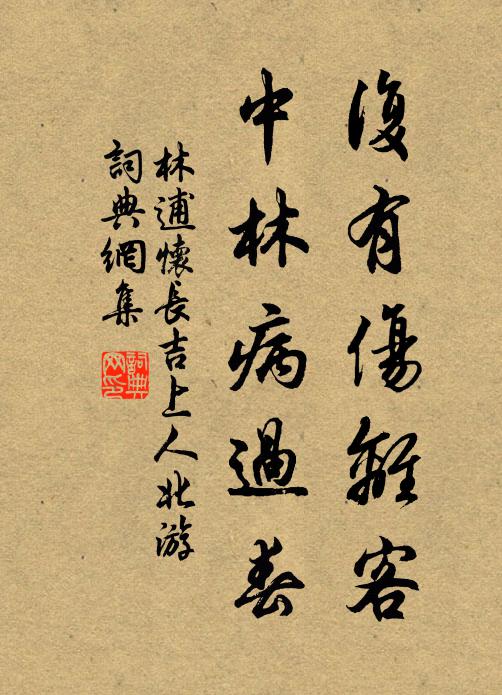 復有傷離客
中林病過春
林逋懷長吉上人北游
詞典網集
詞典网印